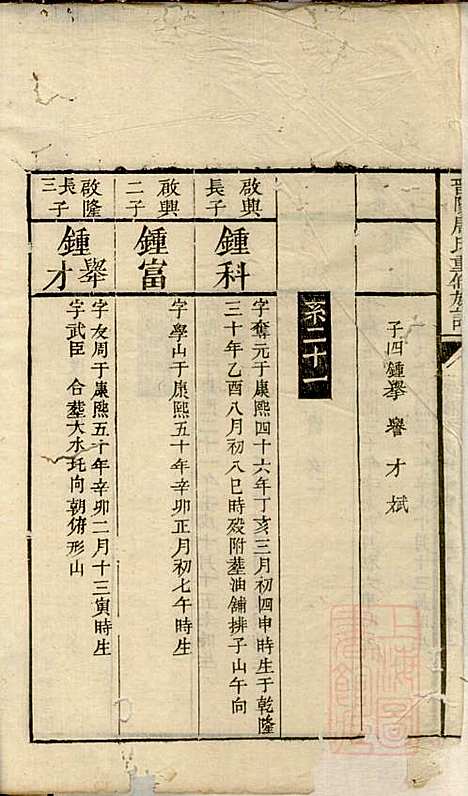 子四鍾舉 譽 才 斌
系二十一
啟興
長子
鍾科
字奪元于康熙四十六年丁亥三月初四申時生于乾隆
三十年乙酉八月初八巳時殁附塟油舗排子山午向
啟興
二子
鍾富
字學山于康熙五十年辛卯正月初七午時生
啟隆
長子
三
鍾舉
才
字友周于康熙五十年辛卯二月十三寅時生
字武臣 合塟大水圫向朝俯形山